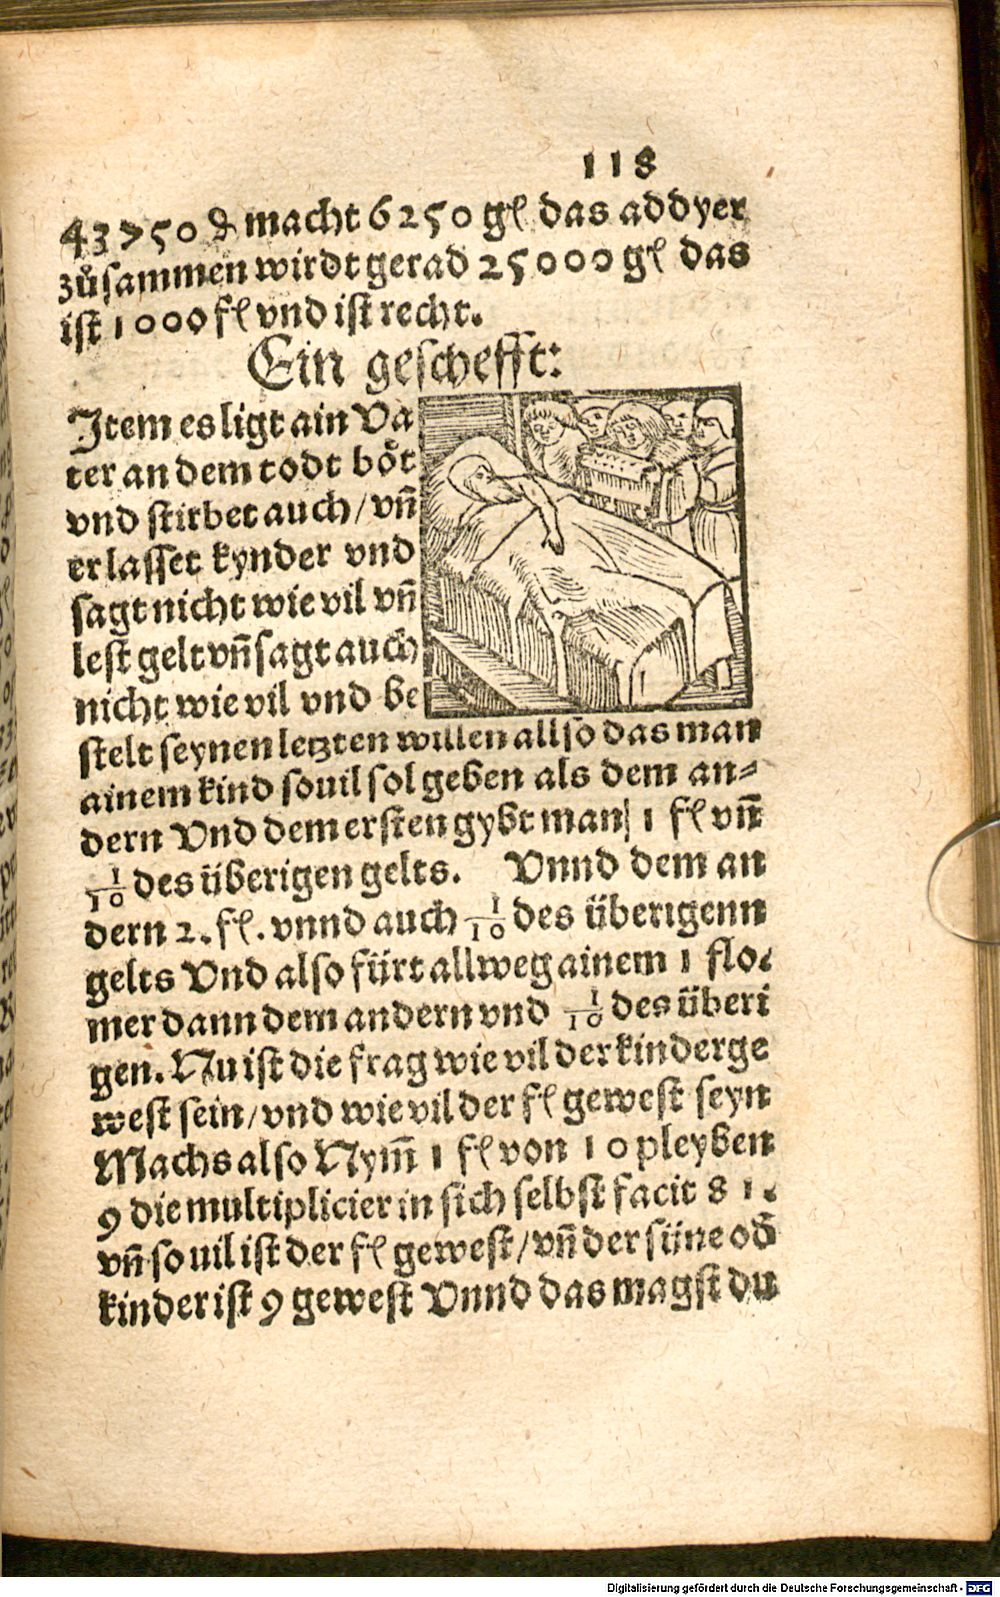 118
43750 ₰ macht 6250 gl das addyer
zůsammen wirdt gerad 25000 gl das
ist 1000 fl vnd ist recht.
Ein geschefft:
Item es ligt ain Va
ter an dem todt bôt
vnd stirbet auch / vn̄
er lasset kynder vnd
sagt nicht wie vil vn̄
lest gelt vn̄ sagt auch
nicht wie vil vnd be
stelt seynen letzten willen allso das man
ainem kind souil sol geben als dem an⸗
dern Vnd dem ersten gybt man 1 fl vn̄
1/10 des überigen gelts. Vnnd dem an
dern 2. fl. vnnd auch 1/10 des überigenn
gelts Vnd also fürt allweg ainem 1 flo.
mer dann dem andern vnd 1/10 des überi
gen. Nu ist die frag wie vil der kinder ge
west sein / vnd wie vil der fl gewest seyn
Machs also Nym̄ 1 fl von 10 pleyben
9 die multiplicier in sich selbst facit 81.
vn̄ so uil ist der fl gewest / vn̄ der süne od̄
kinder ist 9 gewest Vnnd das magst du
Digitalisierung gefördert durch die Deutsche Forschungsgemeinschaft - DFG